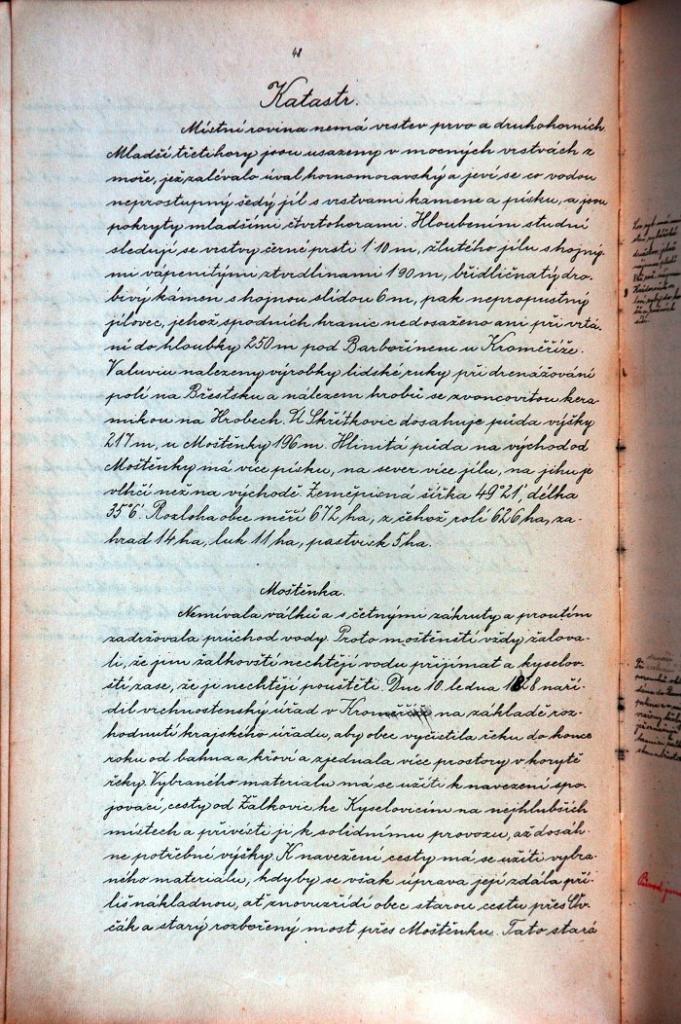 Katastr.
Místní rovina nemá vrstev prvo a druhohorních.
Mladší třetihory jsou usazeny v mocných vrstvách z
moře, jež zalévalo úval hornomoravský a jeví se co vodou
neprostupný šedý jíl s vrstvami kamene a písku, a jsou
pokryty mladšími čtvrtohorami. Hloubením studní
sledují se vrstvy černé prsti 1·10 m, žlutého jílu s hojný-
mi vápenitými ztvrdlinami 1·90 m, břidličnatý dro-
bivý kámen s hojnou slídou 6 m, pak nepropustný
jílovec, jehož spodních hranic nedosaženo ani při vrtá-
ní do hloubky 250 m pod Barbořinem u Kroměříže.
V aluviu nalezeny výrobky lidské ruky při drenážování
polí na Břestsku a nálezem hrobů se zvoncovitou kera-
mikou na Hrobech. U Skřítkovic dosahuje půda výšky
217 m, u Moštěnky 196 m. Hlinitá půda na východ od
Moštěnky má více písku, na sever více jílu, na jihu je
vlhčí než na východě. Zeměpisná šířka 49°21', délka
35°6'. Rozloha obce měří 672 ha, z čehož rolí 626 ha, za-
hrad 14 ha, luk 11 ha, pastvisek 5 ha.
Moštěnka.
Nemívala válků a s četnými zákruty a proutím
zadržovala průchod vody. Proto moštěnští vždy žalova-
li, že jim žalkovští nechtějí vodu přijímat a kyselov-
ští zase, že ji nechtějí pouštěti. Dne 10. ledna 1828 naří-
dil vrchnostenský úřad v Kroměříži na základě roz-
hodnutí krajského úřadu, aby obec vyčistila řeku do konce
roku od bahna a křoví a zjednala více prostory v korytě
řeky. Vybraného materialu má se užíti k navezení spo-
jovací cesty od Žalkovic ke Kyselovicím na nejhlubších
místech a přivésti ji k solidnímu provozu, až dosáh-
ne potřebné výšky. K navežení cesty má se užíti vybra-
ného materiálu, kdyby se však úprava její zdála pří-
liš nákladnou, ať znovuzřídí obec starou cestu přes
a starý rozbořený most přes Moštěnku. Tato stará